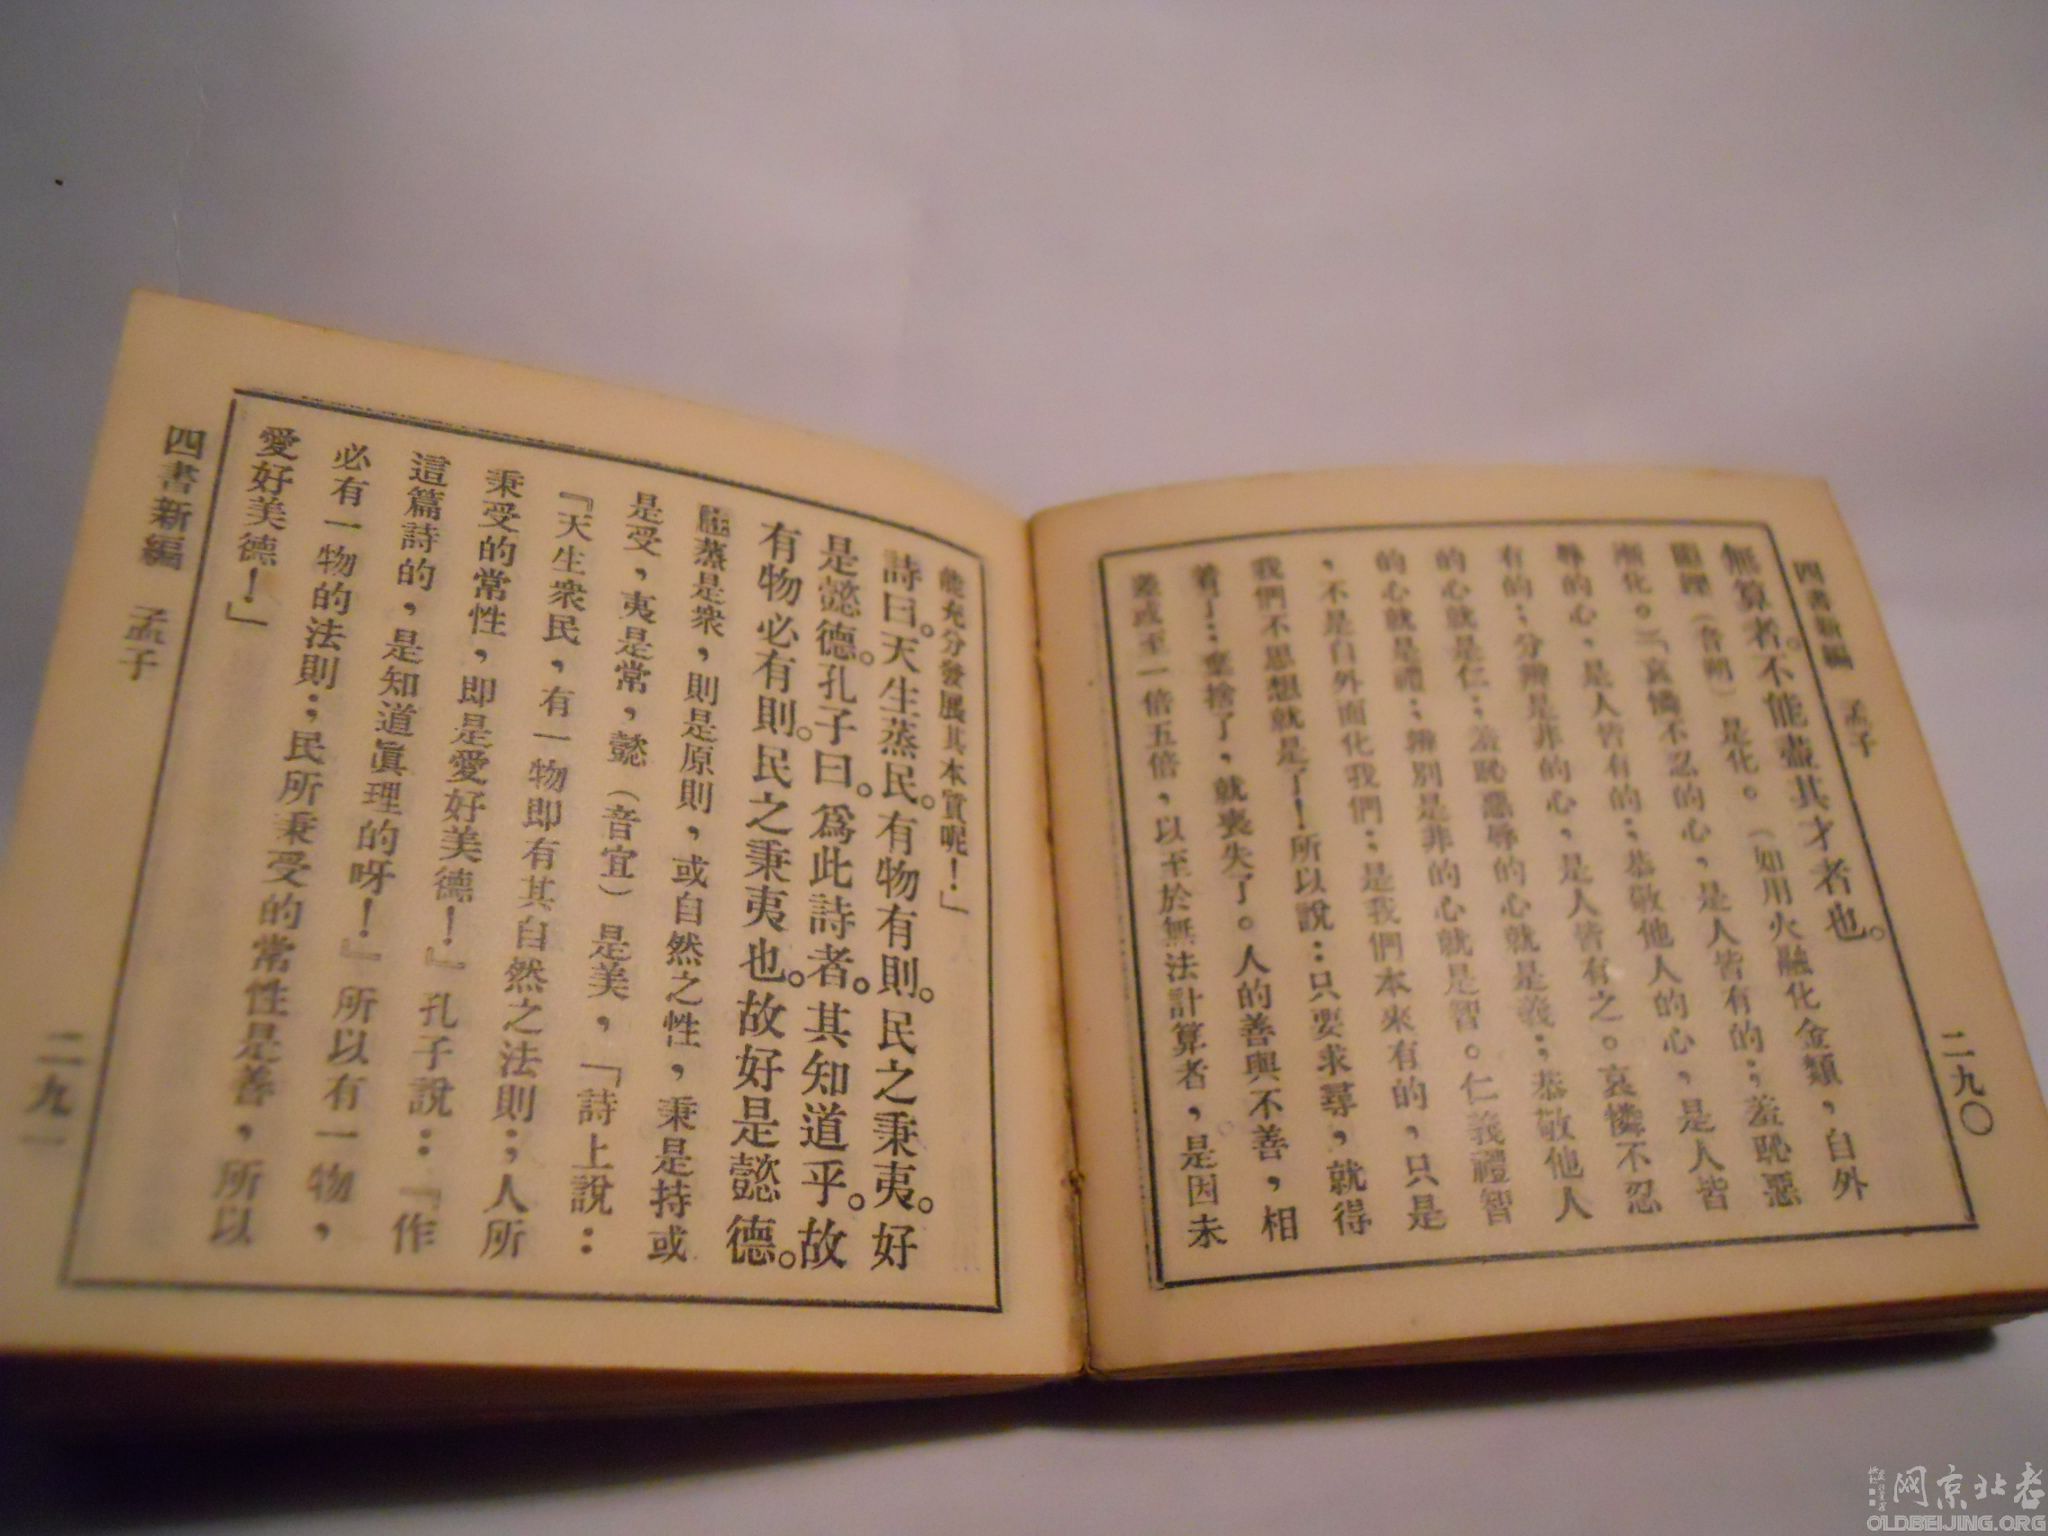 四書新編 孟子
二九〇
無算者。不能盡其才者也。
鑠（音朔）是化。（如用火融化金類，自外
漸化。「哀憐不忍的心，是人皆有的；羞恥惡
辱的心，是人皆有的；恭敬他人的心，是人皆
有的；分辨是非的心，是人皆有之。哀憐不忍
的心就是仁；羞恥惡辱的心就是義；恭敬他人
的心就是禮；辨別是非的心就是智。仁義禮智
，不是自外面化我們；是我們本來有的，只是
我們不思想就是了！所以說：只要求尋，就得
着了；棄捨了，就喪失了。人的善與不善，相
差或至一倍五倍，以至於無法計算者，是因未
能充分發展其本質呢！」
詩曰。天生蒸民。有物有則。民之秉夷。好
是懿德。孔子曰。爲此詩者。其知道乎。故
有物必有則。民之秉夷也。故好是懿德。
蒸是衆，則是原則，或自然之性，秉是持或
是受，夷是常，懿（音宜）是美，「詩上說：
『天生衆民，有一物即有其自然之法則；人所
秉受的常性，即是愛好美德！』孔子說：『作
這篇詩的，是知道眞理的呀！』所以有一物，
必有一物的法則；民所秉受的常性是善，所以
愛好美德！」
四書新編 孟子
二九一
老北京网
OLDBEIJING.ORG